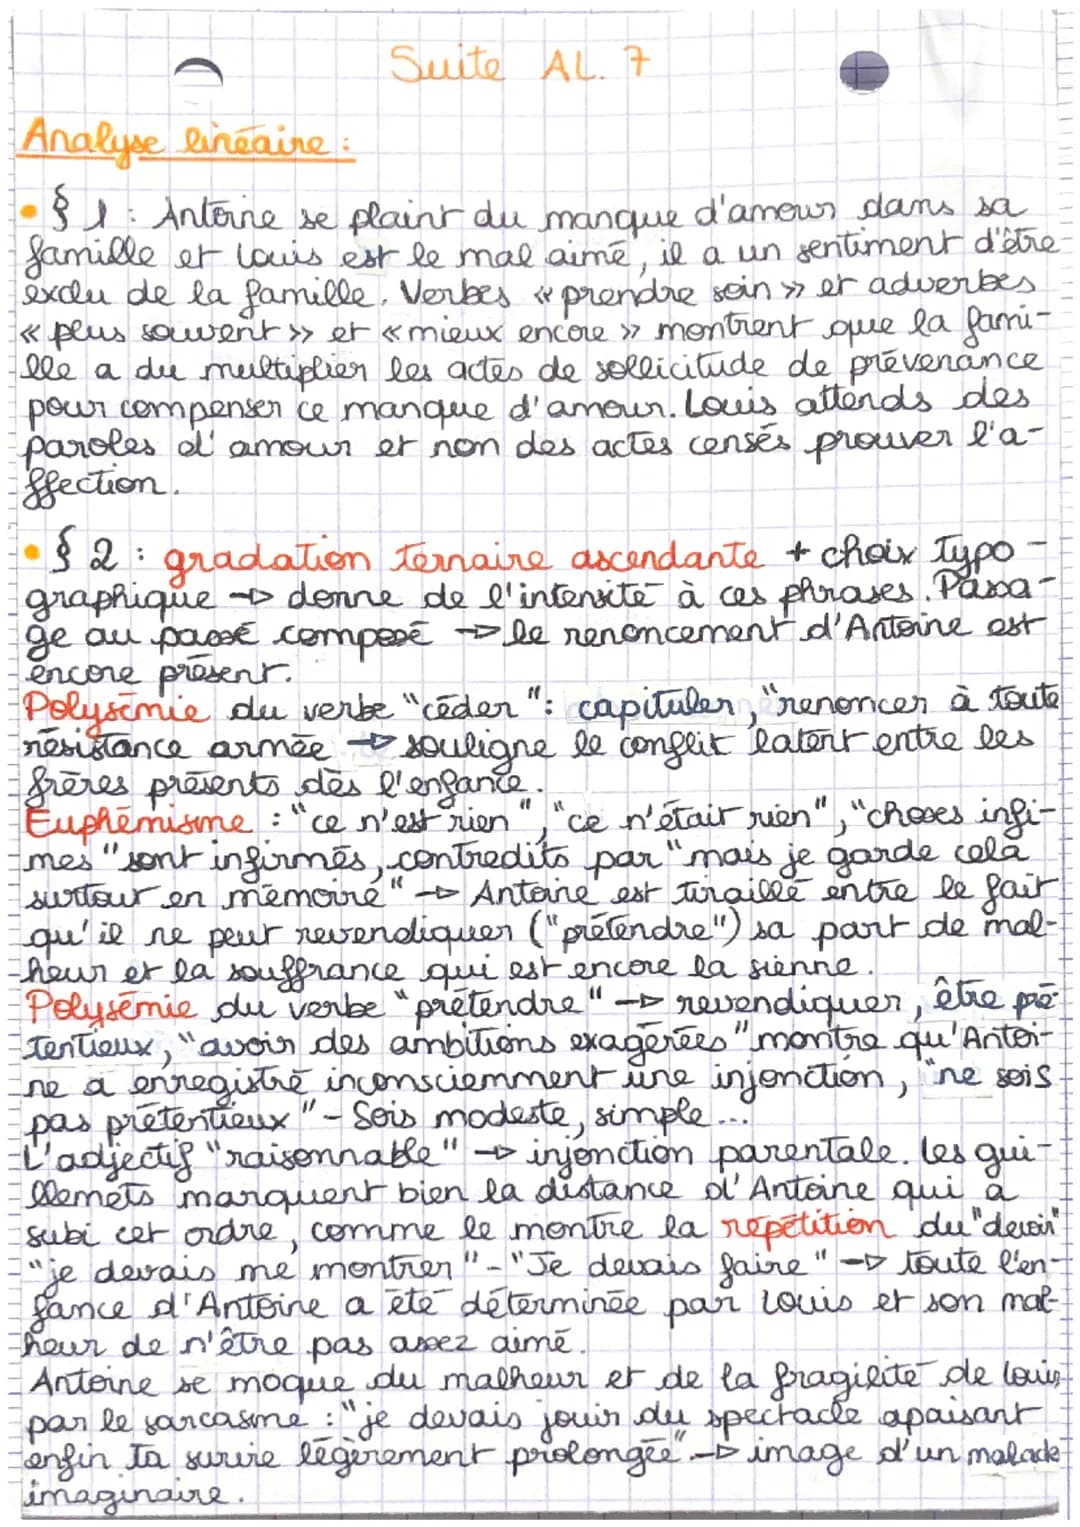 Suite AL. 7
Analyse linéaire :
• § 1 : Antoine se plaint du manque d'amour dans sa
famille et Louis est le mal aimé, il a un sentiment d'être
exclu de la famille. Verbes « prendre soin » et adverbes
« plus souvent » et « mieux encore » montrent que la fami-
lle a du multiplier les actes de sollicitude de prévenance
pour compenser ce manque d'amour. Louis attends des
paroles d'amour et non des actes censés prouver l'a-
ffection.
• § 2 : gradation ternaire ascendante + choix typo-
graphique → donne de l'intensité à ces phrases. Passa-
ge au passé composé → le renoncement d'Antoine est
encore présent.
Polysémie du verbe "céder" : capituler, "renoncer à toute
résistance armée → souligne le conflit latent entre les
frères présents dès l'enfance.
Euphémisme : "ce n'est rien", "ce n'était rien", "choses infi-
mes" sont infirmés, contredits par "mais je garde cela
surtout en mémoire" → Antoine est tiraillé entre le fait
qu'il ne peut revendiquer ("prétendre") sa part de mal-
heur et la souffrance qui est encore la sienne.
Polysémie du verbe "prétendre" → revendiquer, être pré-
tentieux, "avoir des ambitions exagérées" montre qu'Antoi-
ne a enregistré inconsciemment une injonction, "ne sois
pas prétentieux" - Sois modeste, simple...
L'adjectif "raisonnable" → injonction parentale. Les gui-
llemets marquent bien la distance d'Antoine qui a
subi cet ordre, comme le montre la répétition du "devoir"
"je devais me montrer" - "Je devais faire" → toute l'en-
fance d'Antoine a été déterminée par Louis et son mal-
heur de n'être pas assez aimé.
Antoine se moque du malheur et de la fragilité de Louis
par le sarcasme : "je devais jouir du spectacle apaisant
enfin ta survie légèrement prolongée" → image d'un malade
imaginaire.